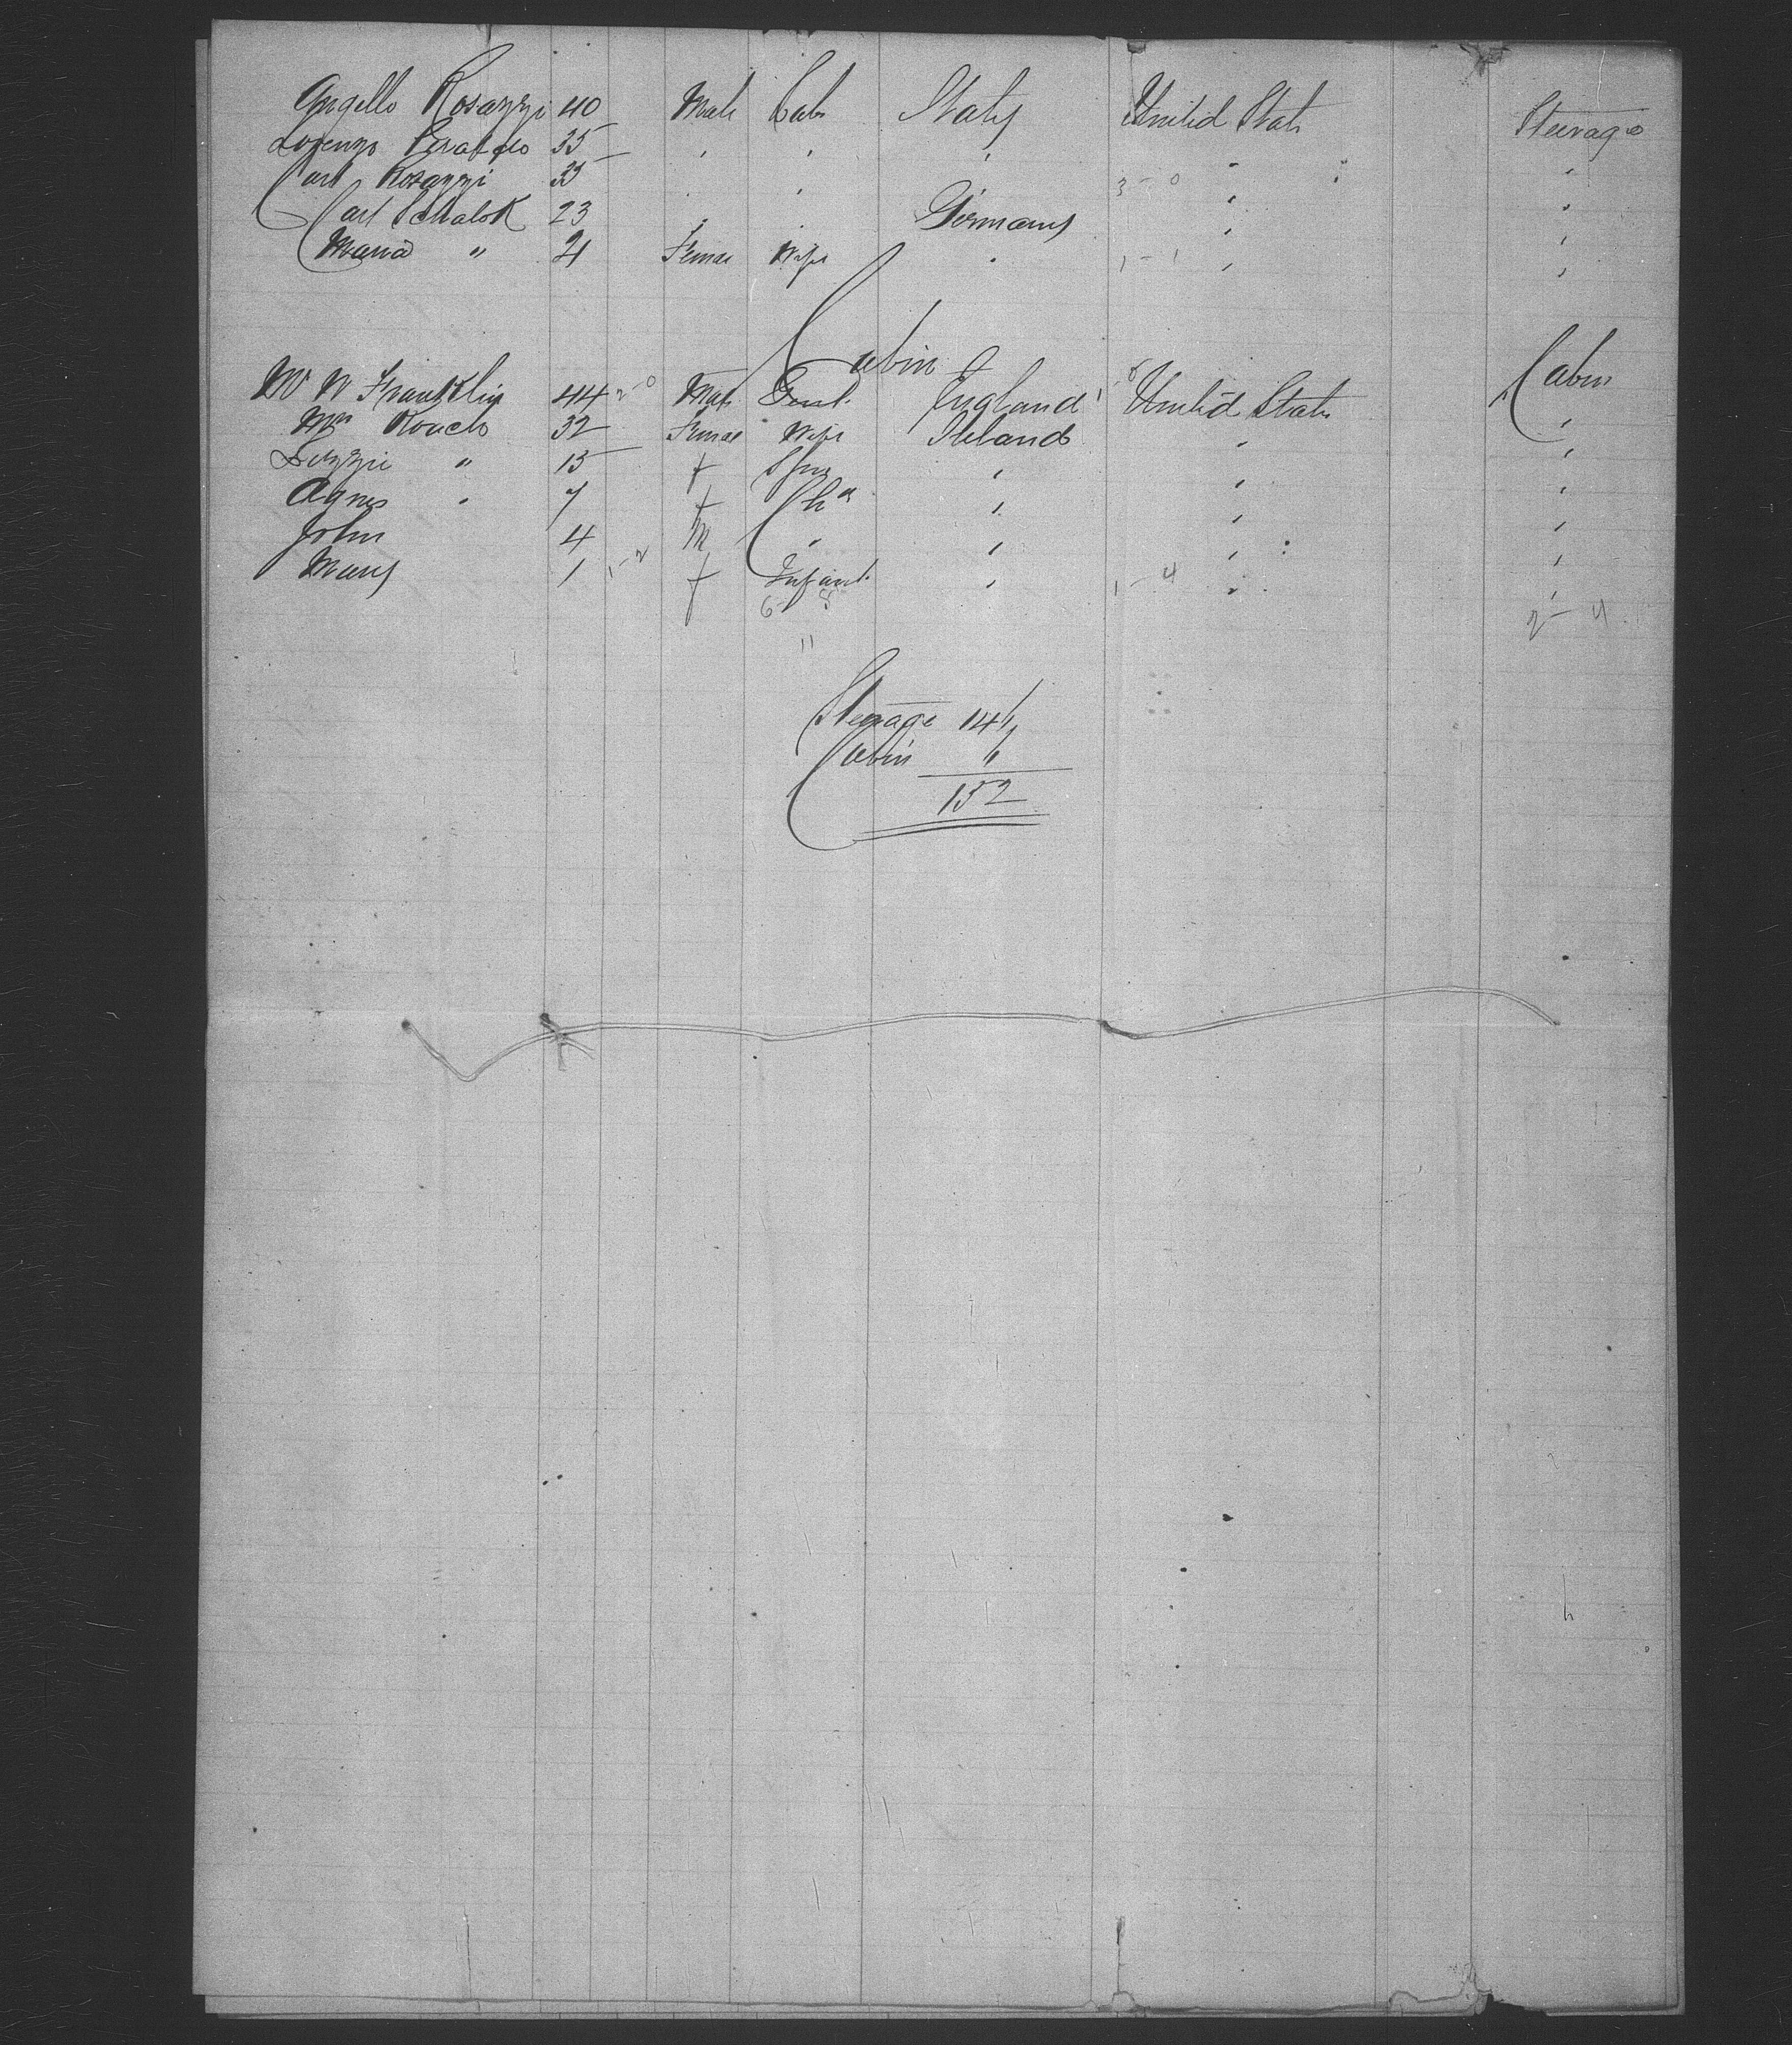 Angello Rosazzi 40 Male Lab Italy United Stats Steerage
Lorenzo 35 " " " " "
Carl Rosazzi 33 " " " 3-0 " "
Carl Schalok 23 " " Germany " "
Maria " 21 Femae Wife " 1-1 " "
Cabin
Mr W Franklin 44 2-0 Male Gent. England 1-0 United Stats Cabin
Mrs Roach 32 Femae Wife Ireland " "
Lizzie " 15 f Spin " " "
Agnes " 7 f Chd " " "
John 4 M " " " "
Mary 1 1-2 f Infant " 1-4 " "
6 - 5 2-4
11
Steerage 146
Cabin 6
152